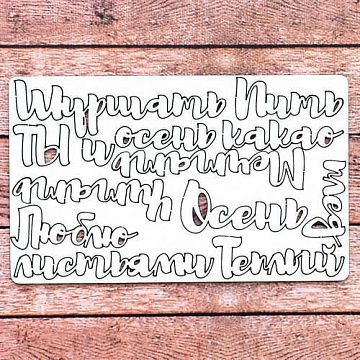 Шуршать Пить
ТЫ и осень какао
Осень
Люблю
листьями Теплый
плед